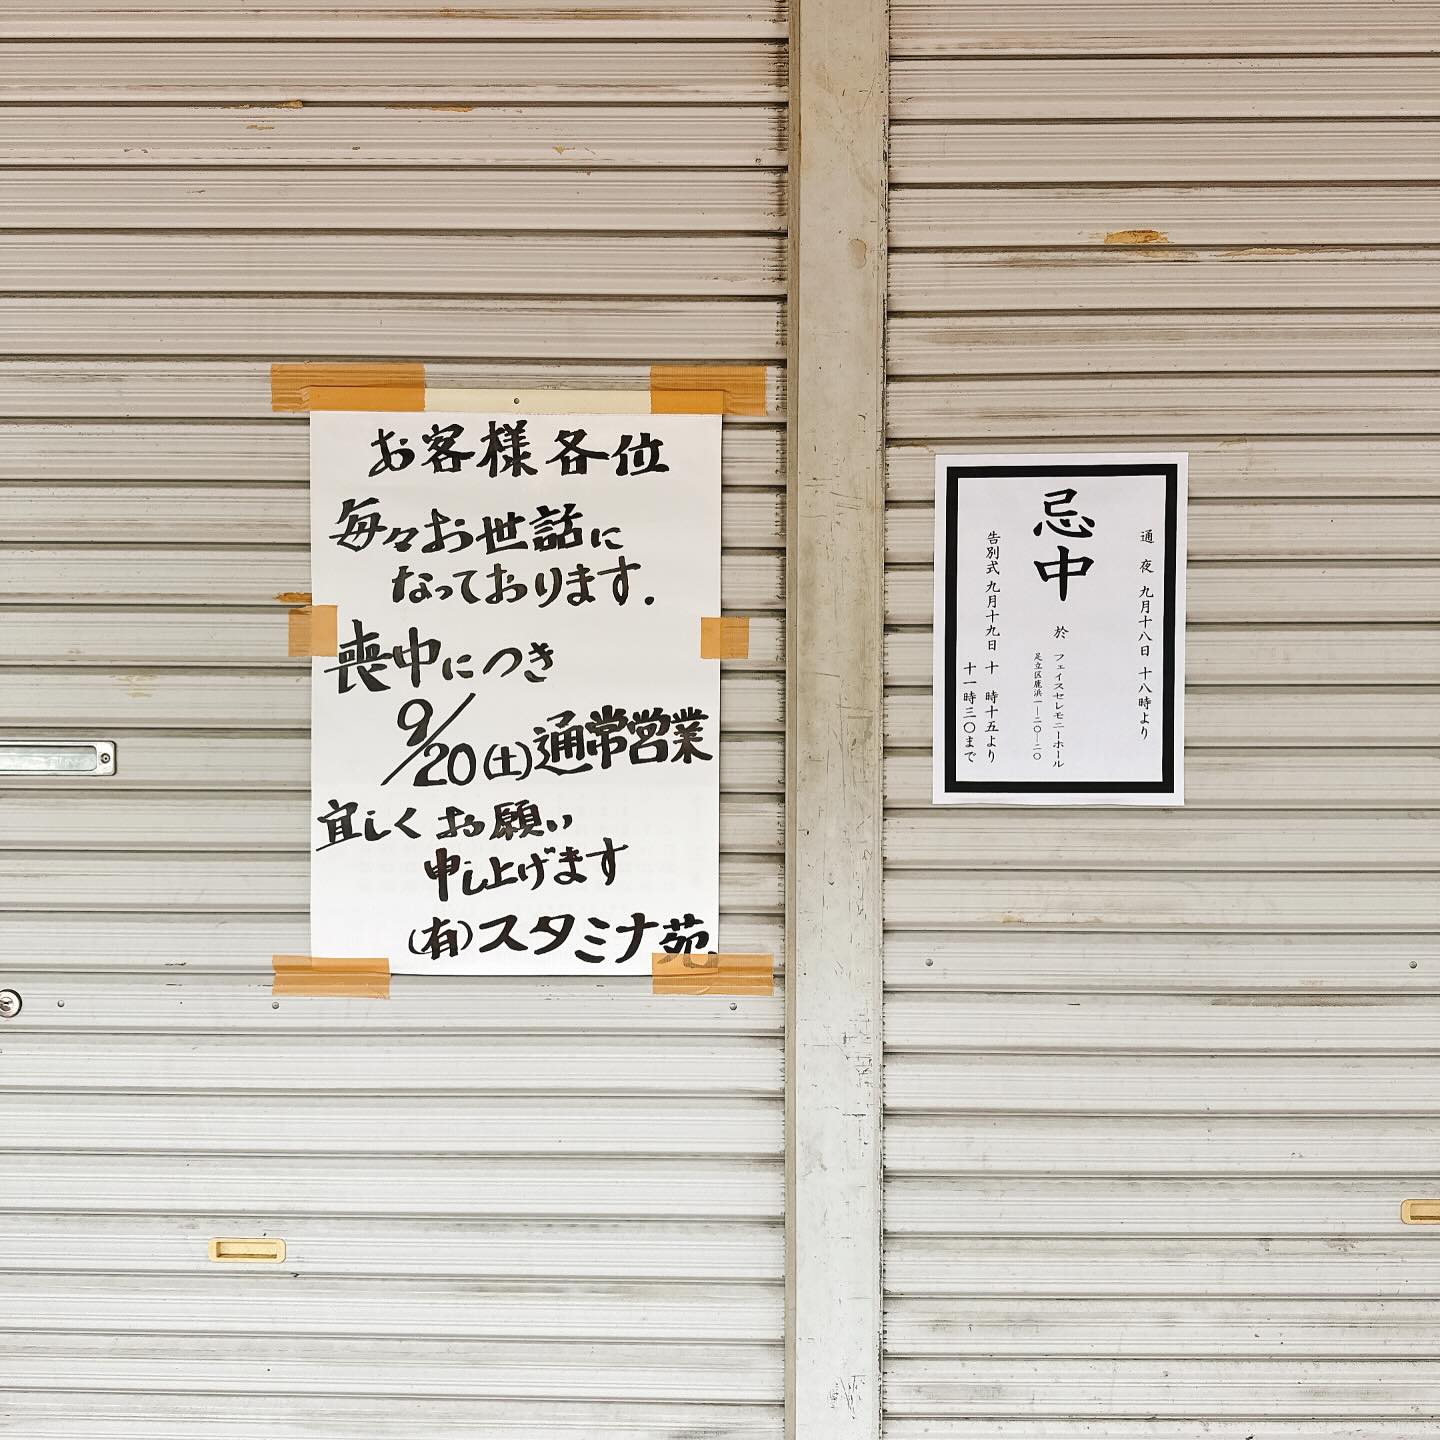 お客様各位
毎々お世話に
なっております.
喪中につき
9/20(土)通常営業
宜しくお願い
申し上げます
(有)スタミナ苑
通夜 九月十八日 十八時より
忌中 於 フェイスセレモニーホール
足立区鹿浜一ー二〇ー二〇
告別式 九月十九日 十時十五より
十一時三〇まで